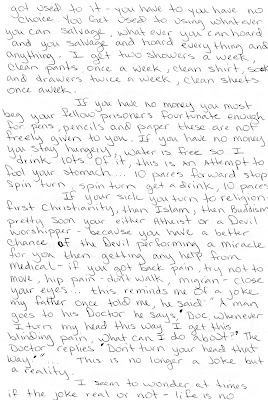 got used to it - you have to you have no
choice. You get used to using whatever
you can salvage, what ever you can hoard
and you salvage and hoard everything and
anything. I get two showers a week,
clean pants once a week, clean shirt, sock
and drawers twice a week, clean sheets
once aweek.
If you have no money you must
beg your fellow prisoners fourtunate enough
for pens, pencils and paper these are not
freely given to you. If you have no money
you stay hungery, water is free so I
drink lots of it, this is an attempt to
fool your stomach.... 10 pares forward stop
spin turn, spin turn get a drink, 10 pares
If your sick you turn to religion:
first Christianity, then Islam, then Buddism
pretty soon your either Atheist or a Devil
worshipper - because you have a better
chance of the Devil performing a miracle
for you then getting any help from
medical - if you got back pain, try not to
move, hip pain - don't walk, migran - close
your eyes... this reminds me of a joke
my father once told me, he said "A man
goes to his Doctor he says "Doc, whenever
I turn my head this way I get this
blinding pain, what can I do about?" The
Doctor replies "Don't turn your head that
way." This is no longer a Joke but
a reality.
I seem to wonder at times
if the joke real or not - life is no